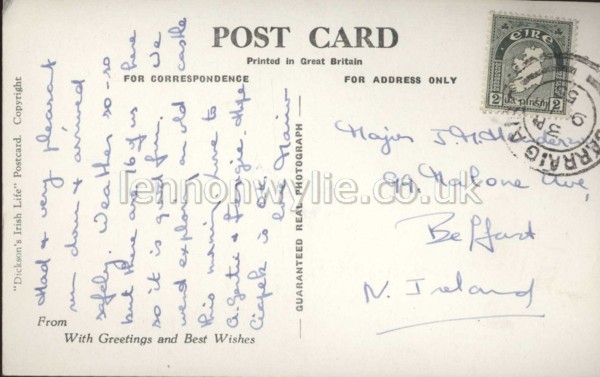 POST CARD
Printed in Great Britain
FOR CORRESPONDENCE
FOR ADDRESS ONLY
"Dickson's Irish Life" Postcard. Copyright
Had a very pleasant
run down & arrived
safely. Weather so-so
but there are 16 of us here
so it is good fun. We
went exploring an old castle
this morning. Love to
A. Gertie & Georgie. Hope
is O.K.
GUARANTEED REAL PHOTOGRAPH
Major J.
9A, Malone Ave,
Belfast
N. Ireland
From
With Greetings and Best Wishes
éIRe
2
2
lennonwylie.co.uk